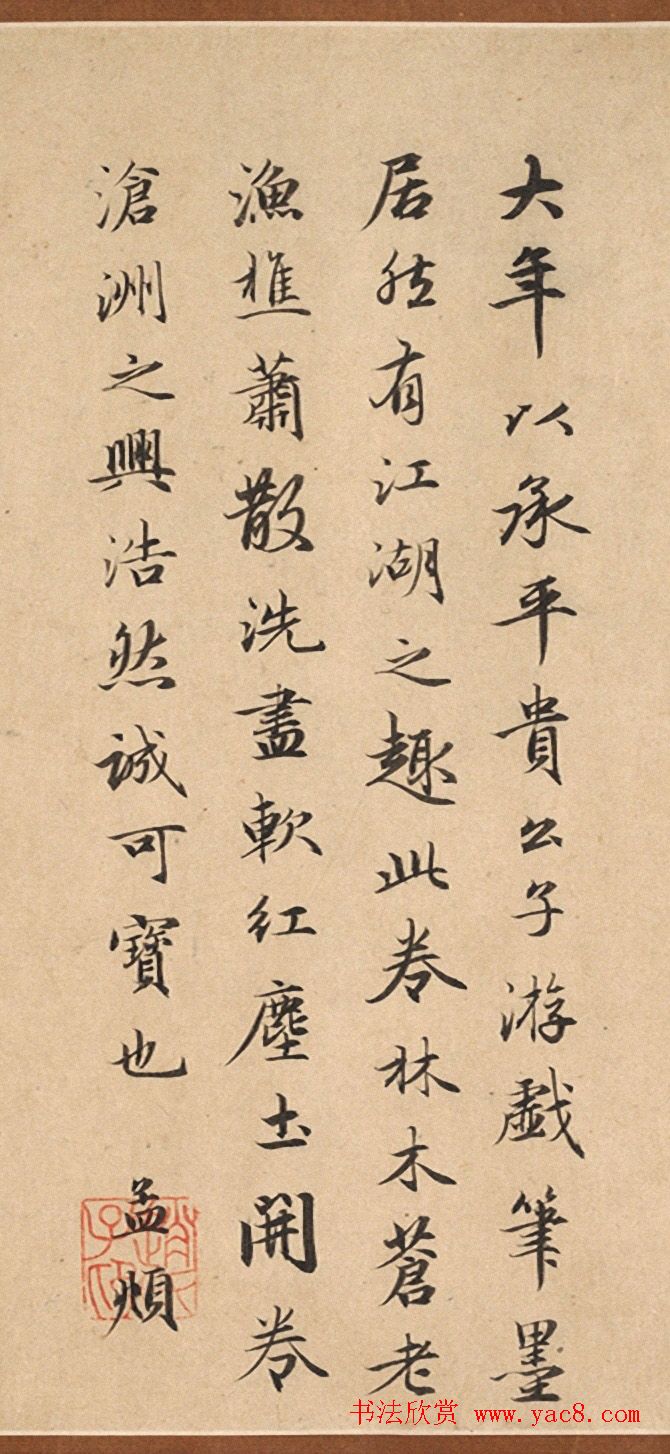 大年以承平貴公子游戲筆墨
居然有江湖之趣此卷林木蒼老
漁樵蕭散洗盡軟紅塵土開卷
滄洲之興浩然誠可寶也 孟頫
趙子昂
书法欣赏 www.yac8.com